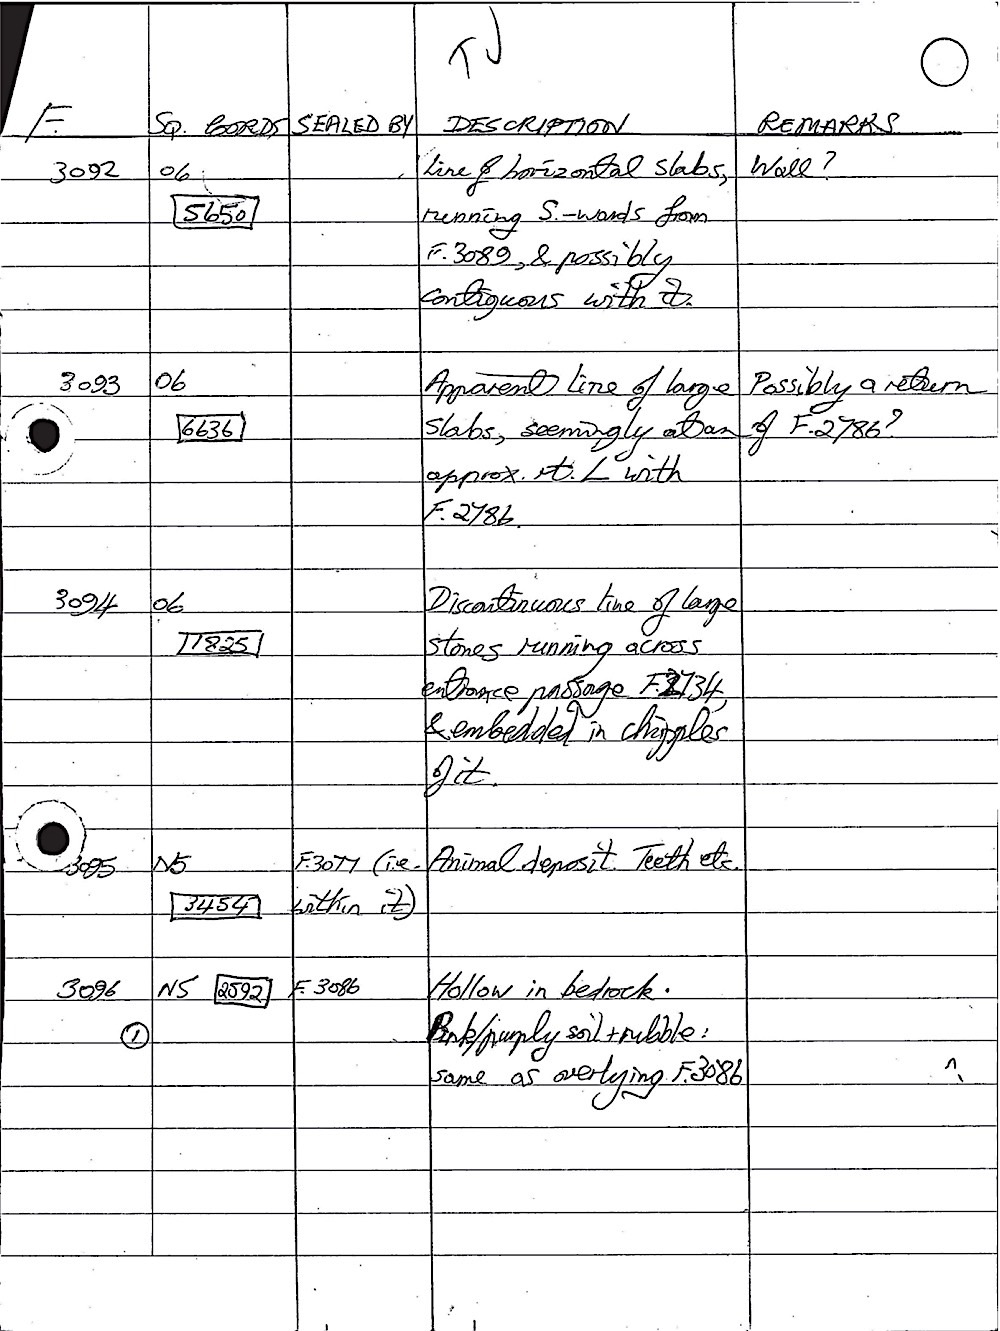 F. SQ. CORDS SEALED BY DESCRIPTION REMARKS
3092 06 Line of horizontal slabs, Wall?
5650 running S.-wards from
F.3089, & possibly
contiguous with it.
3093 06 Apparent line of large Possibly a return
6636 slabs, seemingly at an of F.2786?
approx. rt. L with
F.2786.
3094 06 Discontinuous line of large
11825 stones running across
entrance passage F.2734,
& embedded in
of it.
3095 N5 F.3077 (i.e. Animal deposit. Teeth etc.
3454 within it)
3096 N5 2592 F. 3086 Hollow in bedrock.
1 Pink/purply soil + rubble:
same as overlying F.3086